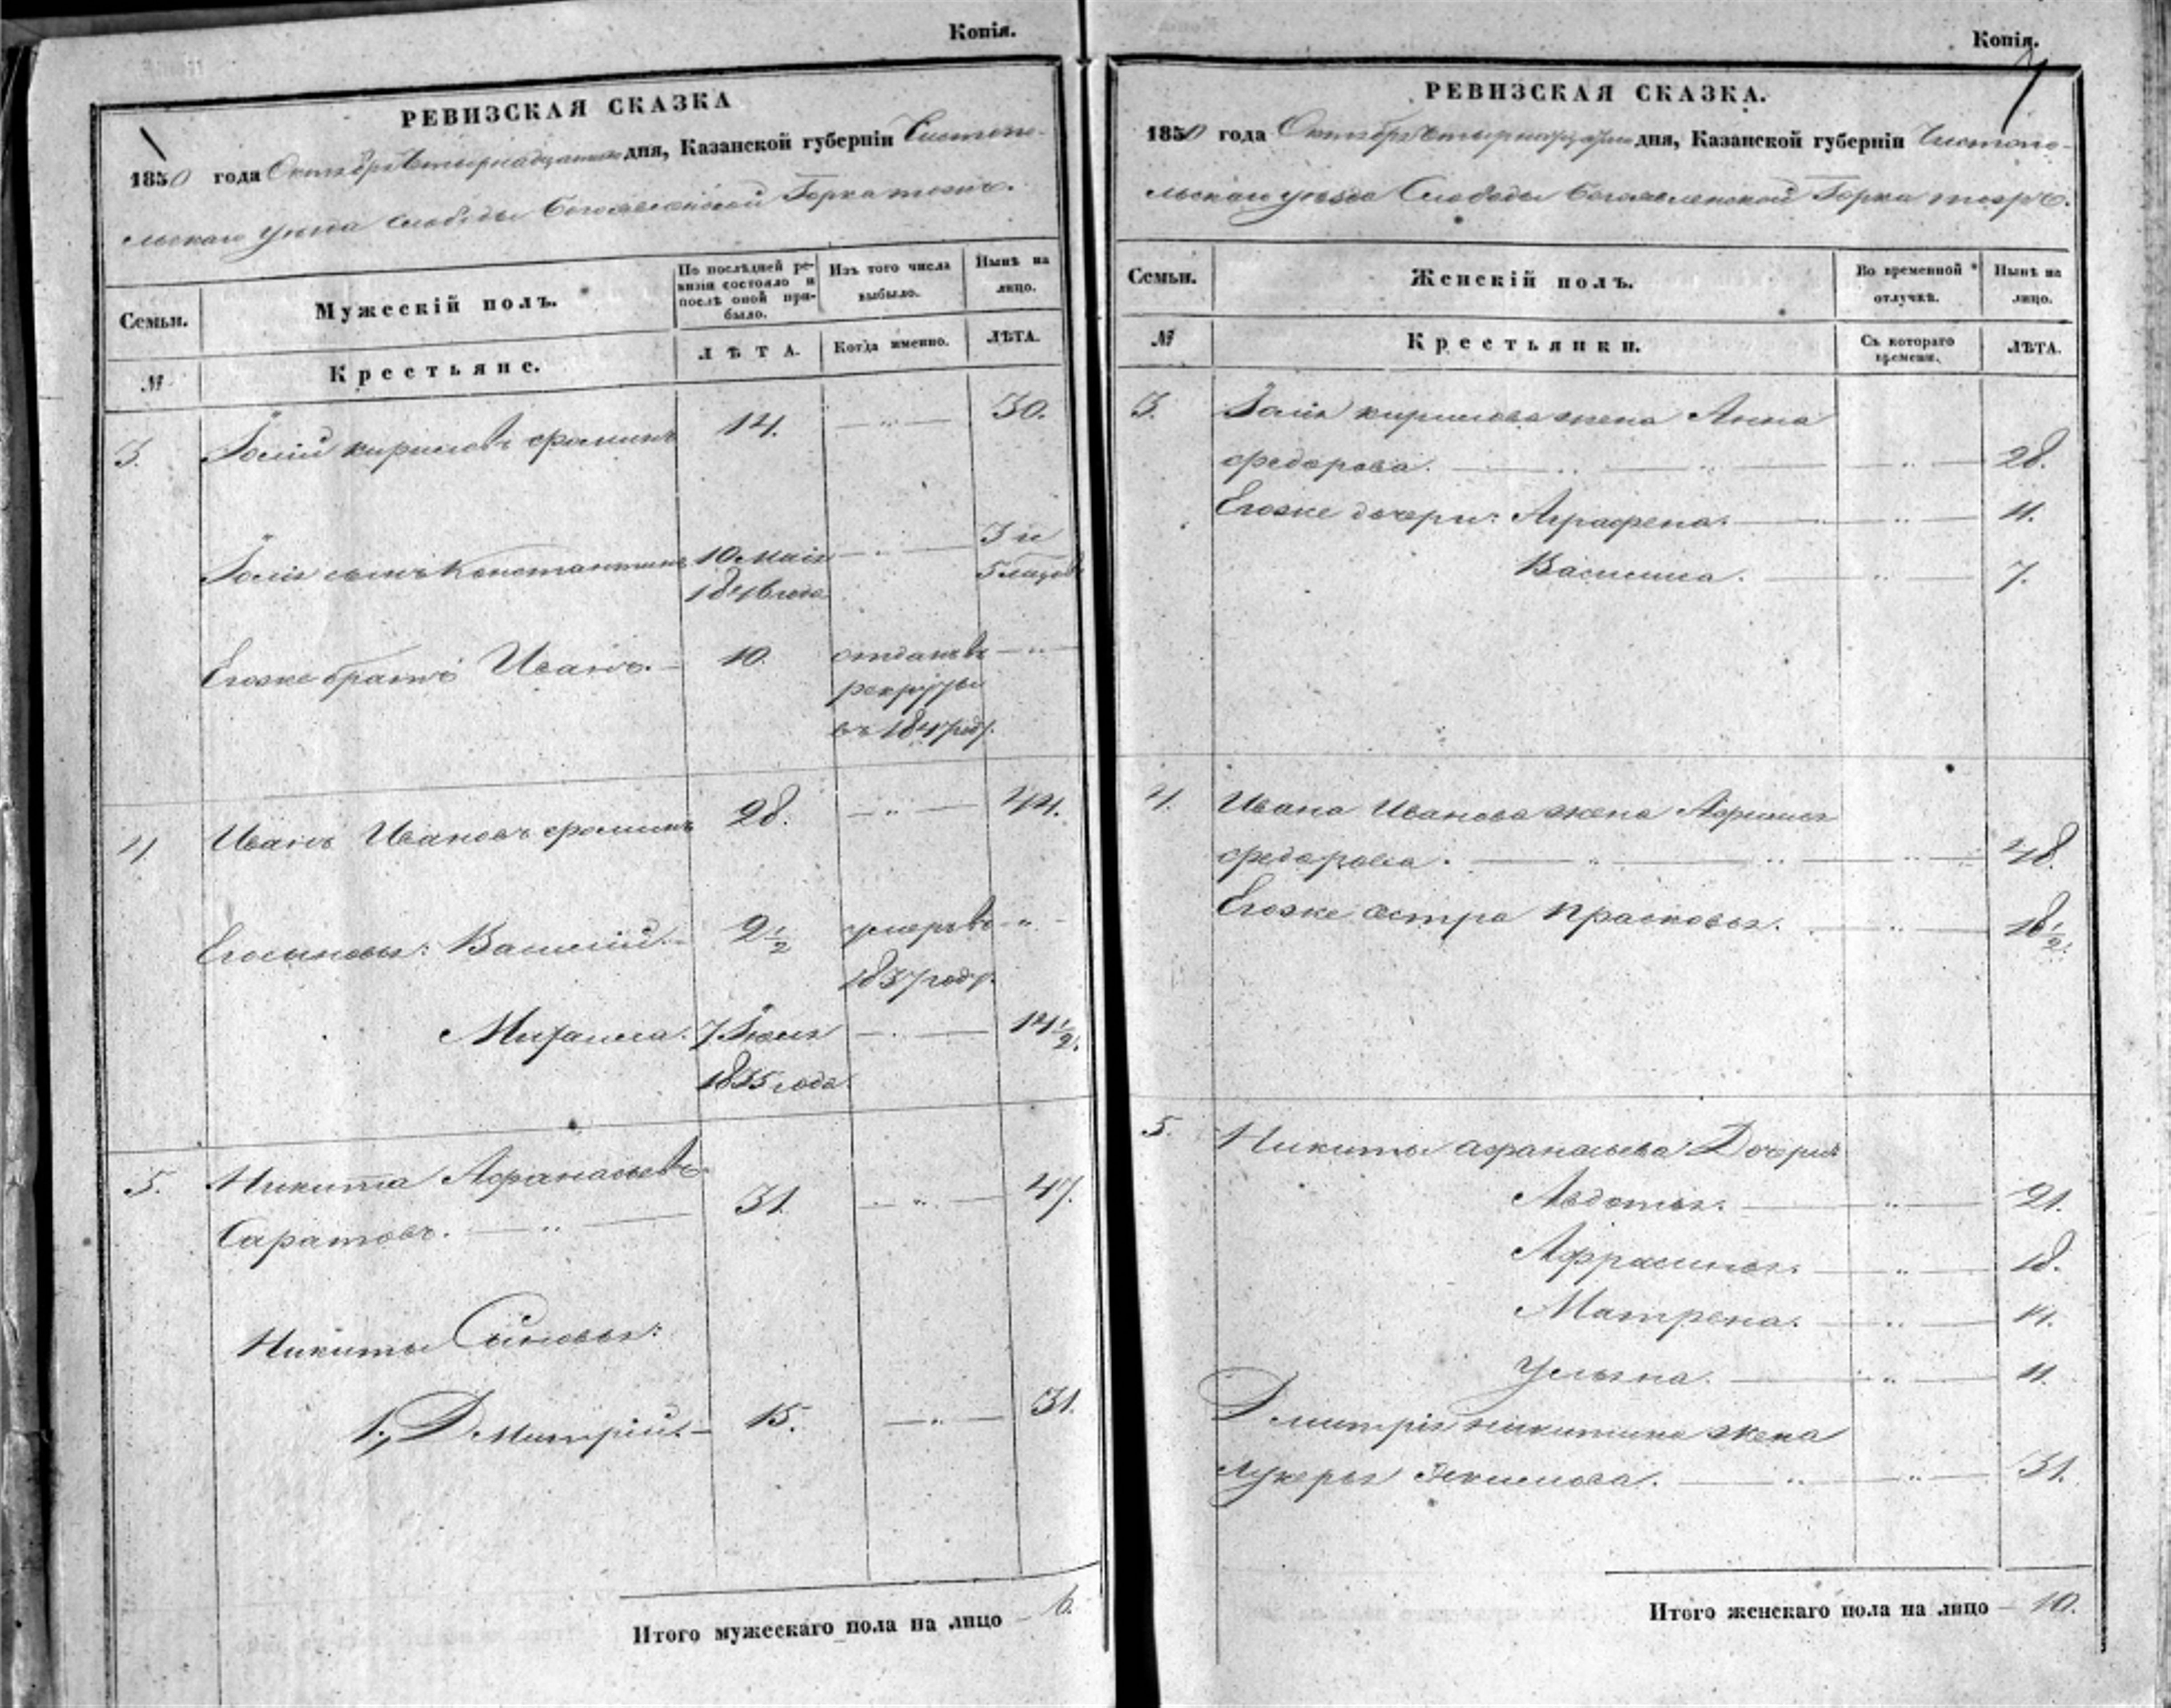 Копія.
РЕВИЗСКАЯ СКАЗКА
1850 года Октября Четырнадцатаго дня, Казанской губерніи Чистопо-
льскаго уѣзда Слободы Богоявленской Горка тожъ.
Семьи.
Мужескій полъ.
По послѣдней ре-
визіи состояло и
послѣ оной при-
было.
Изъ того числа
выбыло.
Нынѣ на
лицо.
№
Крестьяне.
ЛѢТА.
Когда именно.
ЛѢТА.
3.
кириловъ фоминъ
14.
30.
сынъ Константинъ
10 Маія
1846 года
3 и
5 месяцов
Егоже братъ Иванъ.
10.
отданъ в
рекруты
въ 1847 году.
4
Иванъ Ивановъ фоминъ
28.
44.
Егосыновья: Василій.
2 1/2
умеръ в
1837 году.
Михаила.
7 Іюля
1835 года
14 1/2.
5.
Никита Афанасьевъ
Саратовъ.
31.
47.
Никиты Сыновья:
1., Дмитрій.
15.
31.
Итого мужескаго пола на лицо 6.
Копія.
7
РЕВИЗСКАЯ СКАЗКА.
1850 года Октября Четырнадцатаго дня, Казанской губерніи Чистопо-
льскаго уѣзда Слободы Богоявленской Горка тожъ.
Семьи.
Женскій полъ.
Во временной
отлучкѣ.
Нынѣ на
лицо.
№
Крестьянки.
Съ котораго
времени.
ЛѢТА.
3.
кирилова жена Анна
федорова.
28.
Егоже дочери: Аграфена.
11.
Василиса.
7.
4.
Ивана Иванова жена
федорова.
48.
Егоже сестра Прасковья.
18 1/2.
5.
Никиты афанасьева Дочери
Авдотья.
21.
Афрасинья.
18.
Матрена.
14.
Ульяна.
11.
Дмитрія никитина жена
лукерья Екимова.
31.
Итого женскаго пола на лицо 10.